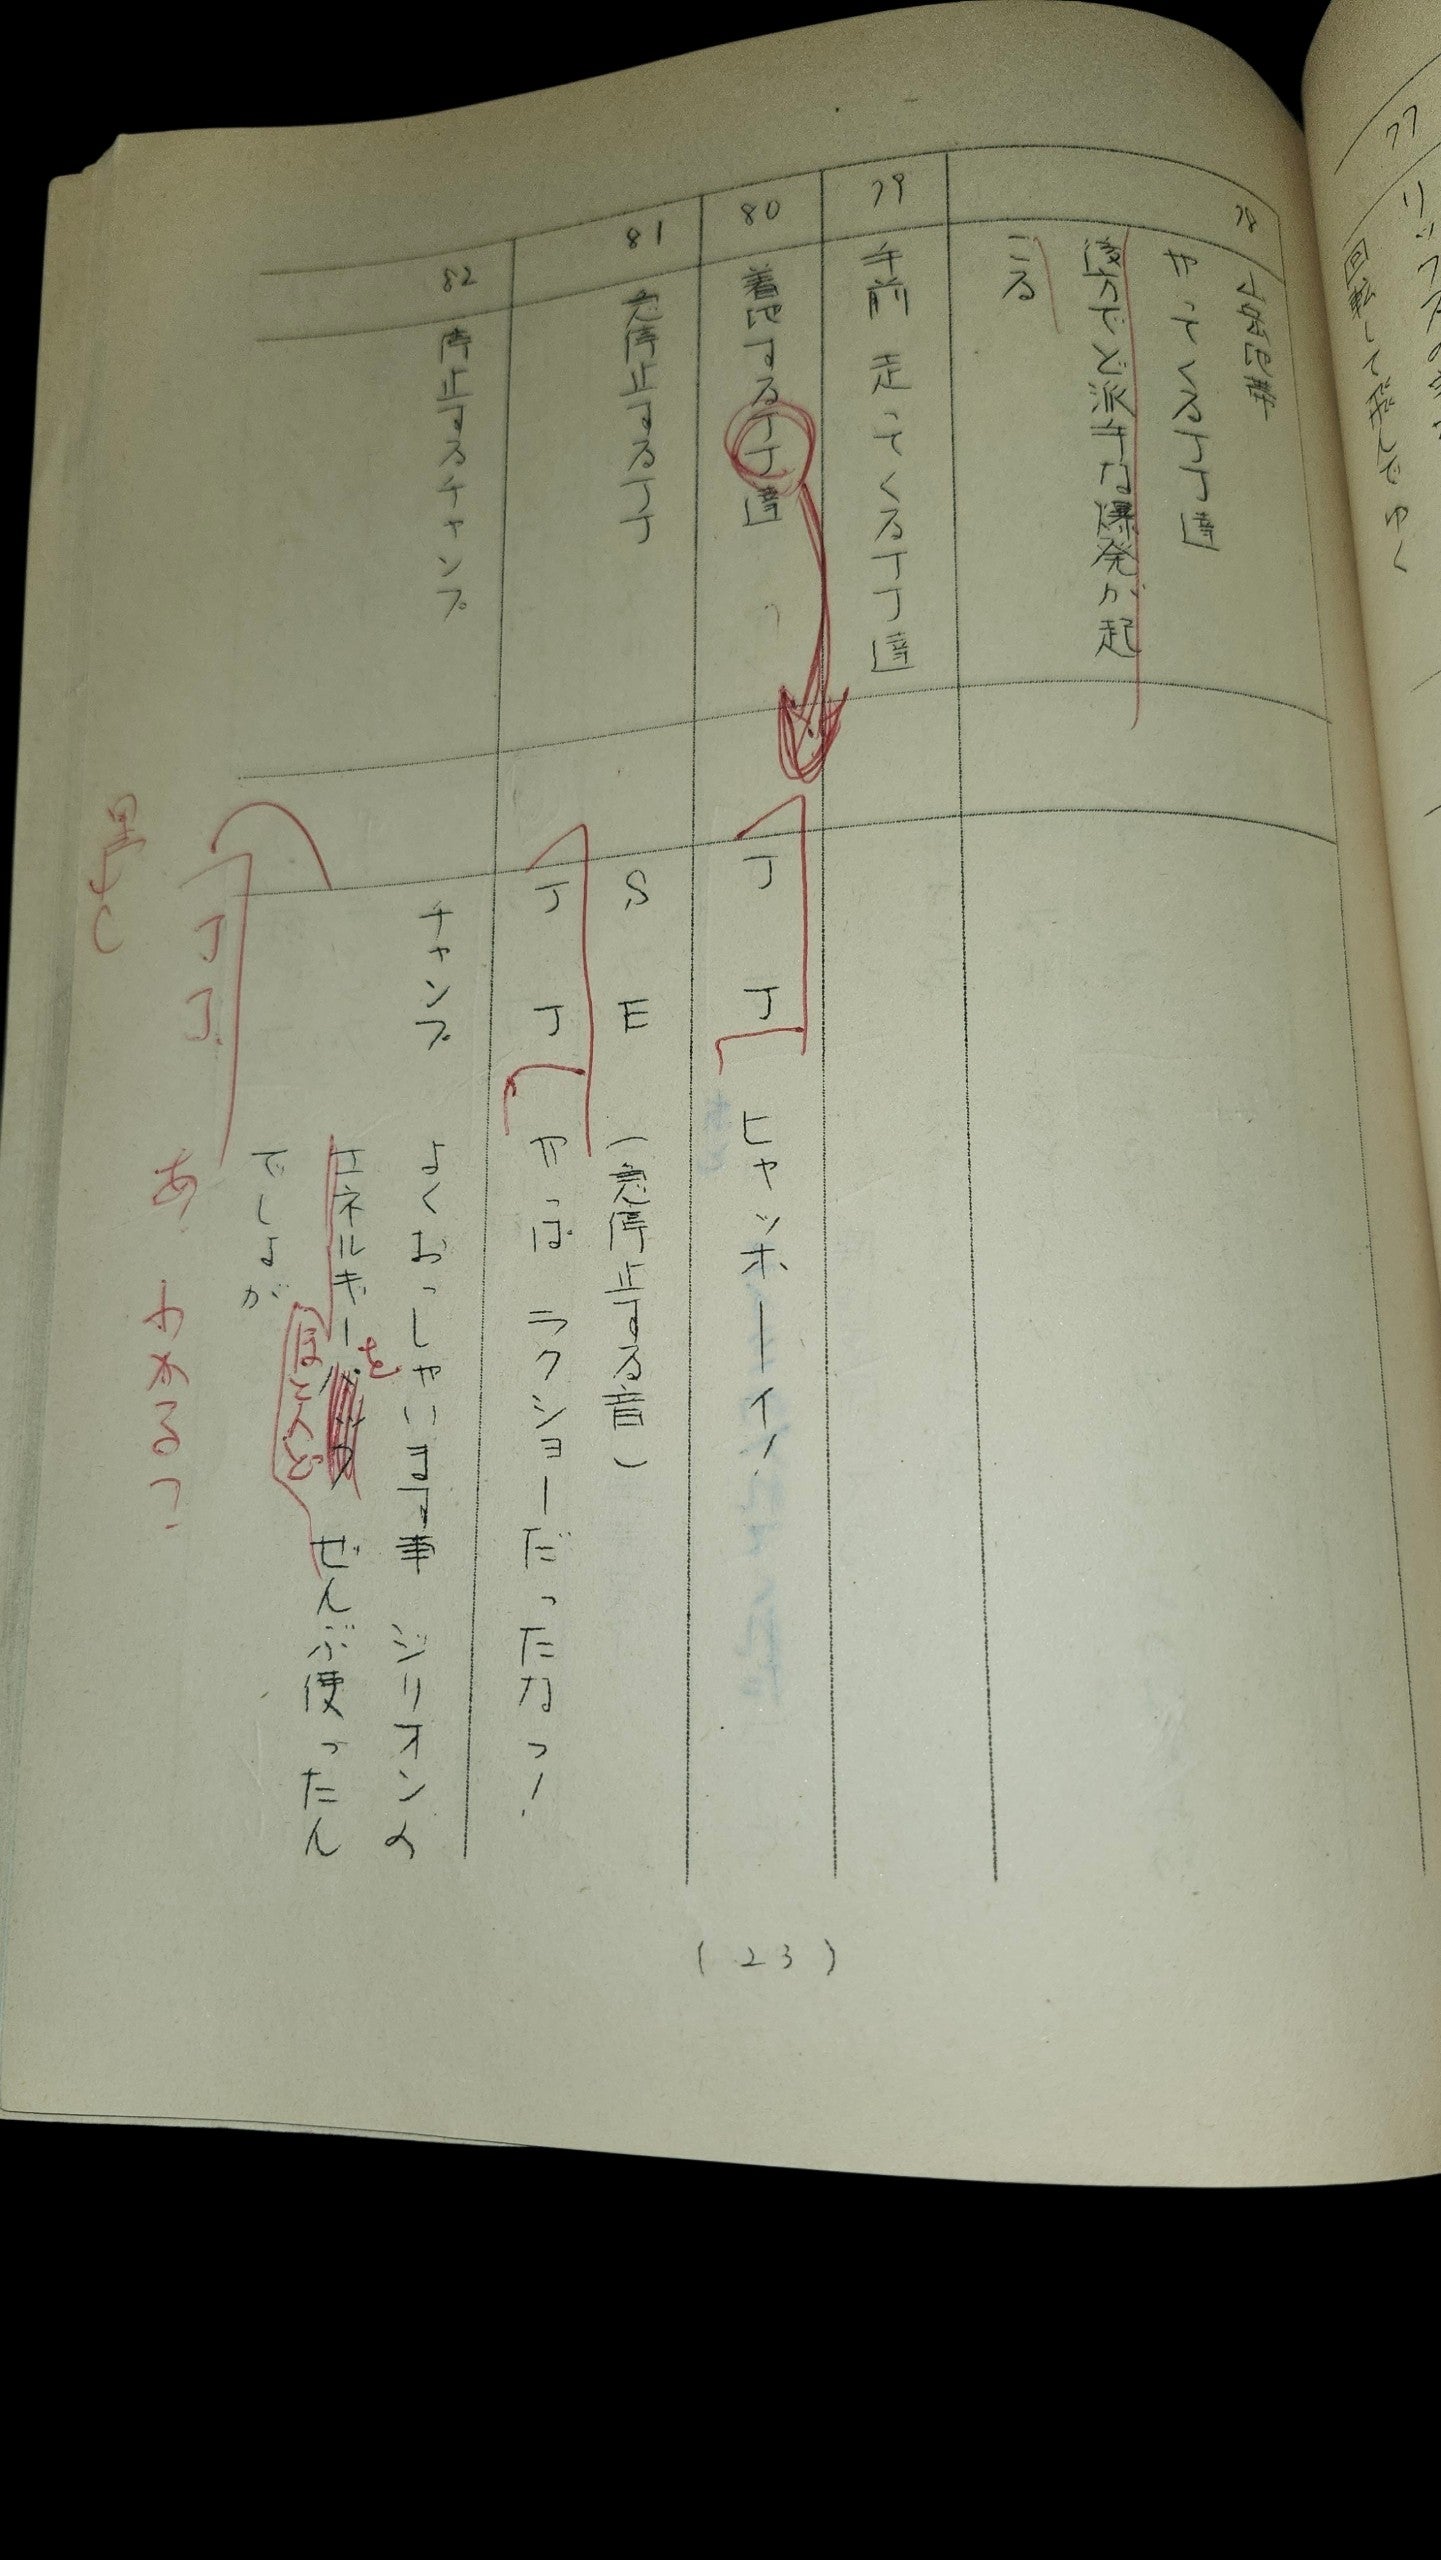 77
回転して飛んでゆく
78
山岳地帯
やってくるJJ達
後方でど派手な爆発が起
こる
79
手前走ってくるJJ達
80
着地するJJ達
JJ ヒャッホーイ!
81
急停止するJJ
SE (急停止する音)
JJ やっぱ ラクショーだったなっ!
82
停止するチャンプ
チャンプ よくおっしゃいます事 ジリオンの
エネルギーを ほとんど ぜんぶ使ったん
でしょが
JJ あ わかる?
(23)